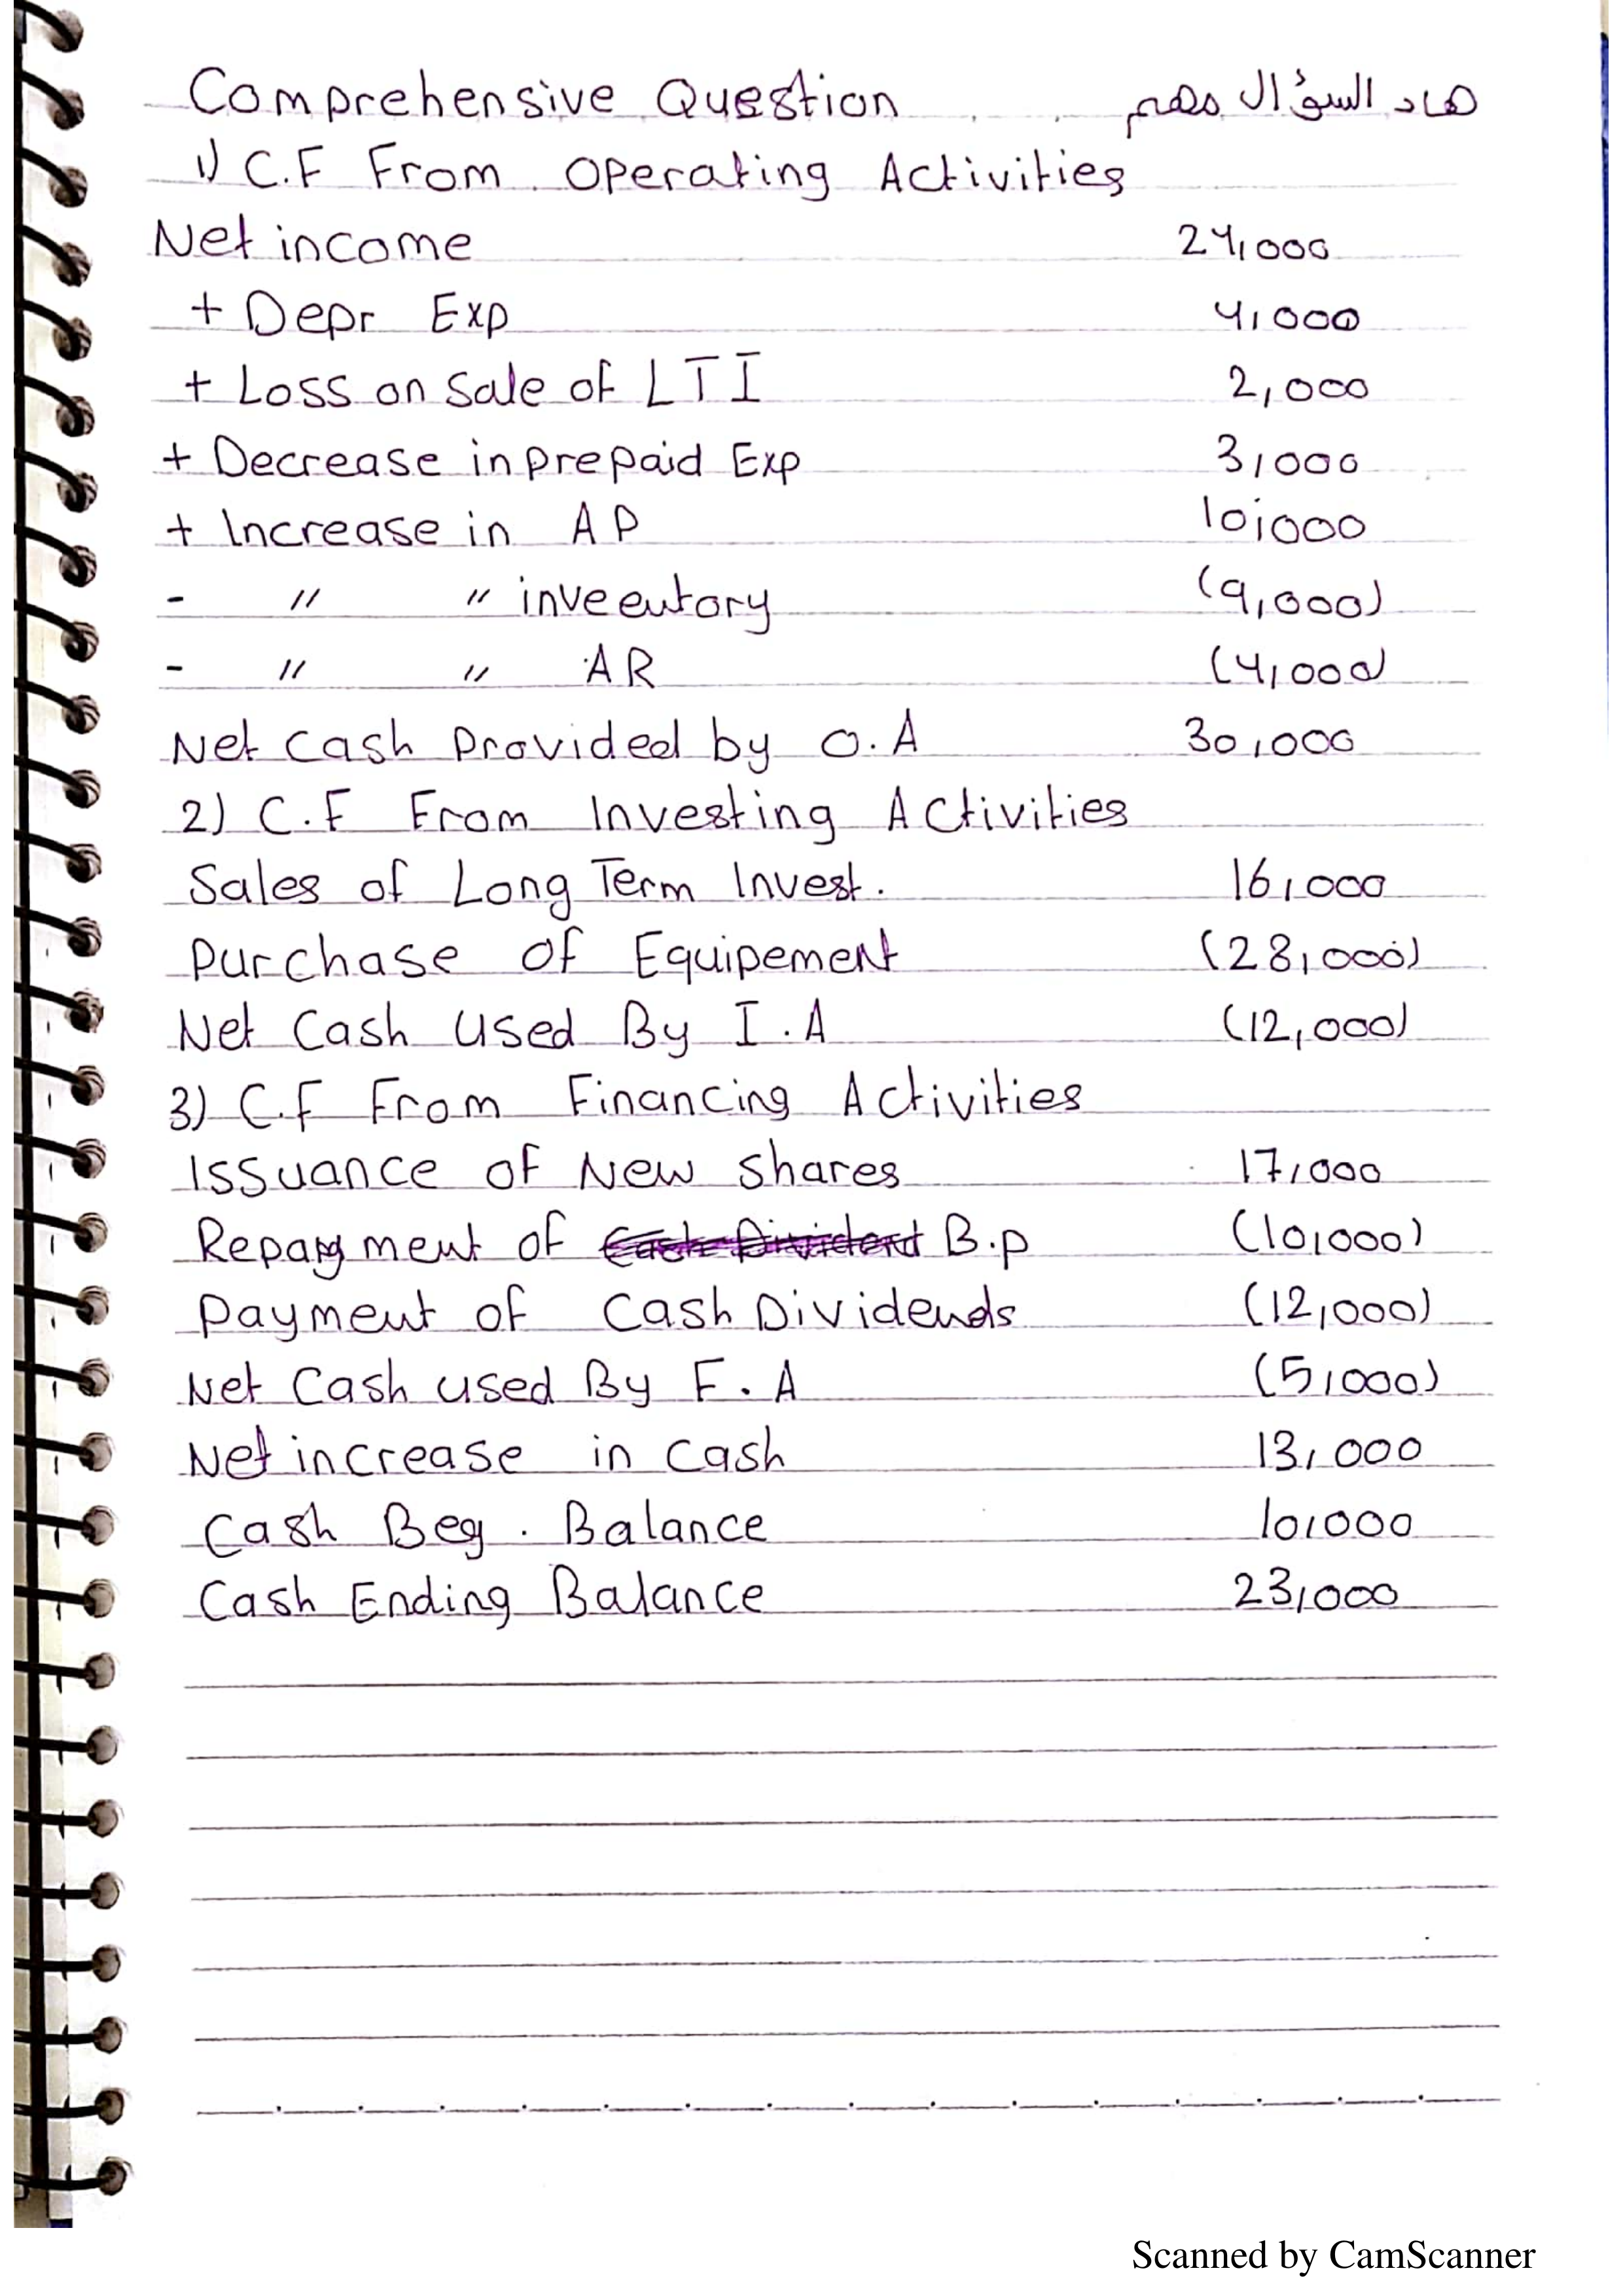 Comprehensive Question هاد السؤال مهم
1) C.F From Operating Activities
Net income 24,000
+ Depr Exp 4,000
+ Loss on sale of LTI 2,000
+ Decrease in prepaid Exp 3,000
+ Increase in AP 10,000
- " " inveentory (9,000)
- " " AR (4,000)
Net Cash Provided by O.A 30,000
2) C.F From Investing Activities
Sales of Long Term Invest. 16,000
Purchase of Equipement (28,000)
Net Cash Used By I.A (12,000)
3) C.F From Financing Activities
Issuance of New shares 17,000
Repayment of B.P (10,000)
Payment of Cash Dividends (12,000)
Net Cash used By F.A (5,000)
Net increase in Cash 13,000
Cash Beg. Balance 10,000
Cash Ending Balance 23,000
Scanned by CamScanner